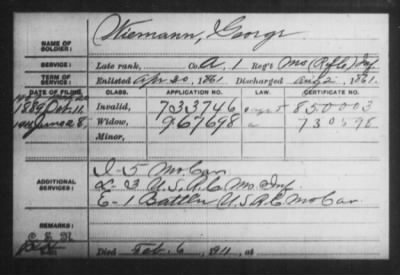 NAME OF SOLDIER: Wiemann, George
SERVICE: Late rank, Co. A, 1 Reg't Mo (Rifle) Inf
TERM OF SERVICE: Enlisted Apr 20, 1861 Discharged Aug 2, 1861.
DATE OF FILING. CLASS. APPLICATION NO. LAW. CERTIFICATE NO.
1889 Oct 11 Invalid, 733746 850003
June 28 Widow, 967698 730598
Minor,
ADDITIONAL SERVICES: I-5 Mo Cav
L-3 U.S.R.C. Mo. Inf
E-1 Battln U.S.R.C Mo Cav
REMARKS:
Died Feb. 6, 1911, at